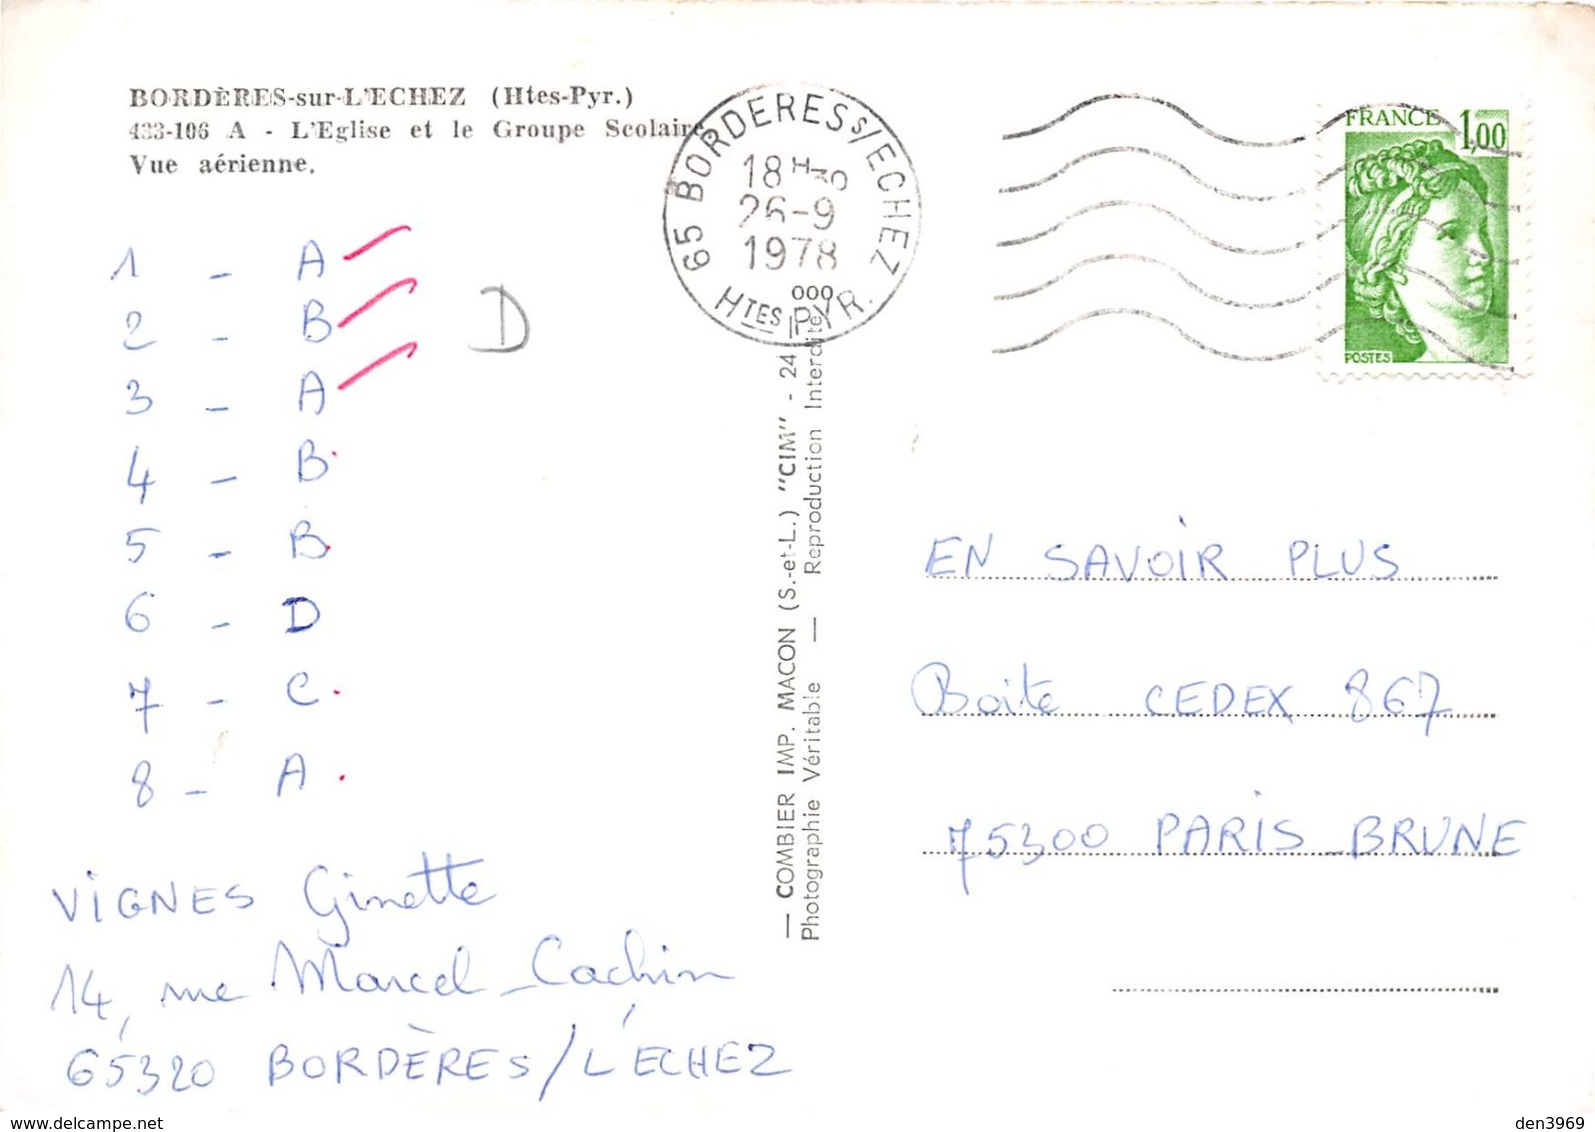 BORDÈRES-sur-L'ECHEZ (Htes-Pyr.)
433-106 A - L'Eglise et le Groupe Scolaire.
Vue aérienne.
1 - A
2 - B
3 - A
4 - B
5 - B
6 - D
7 - C
8 - A
D
VIGNES Ginette
14, rue Marcel Cachin
65320 BORDÈRES/L'ECHEZ
65 BORDERES S/ECHEZ
18 H 30
26-9
1978
000
HTES PYR.
— COMBIER IMP. MACON (S.-et-L.) "CIM" - 24
Photographie Véritable — Reproduction Interdite
FRANCE 1,00
POSTES
EN SAVOIR PLUS
Boite CEDEX 867
75300 PARIS BRUNE
www.delcampe.net
den3969